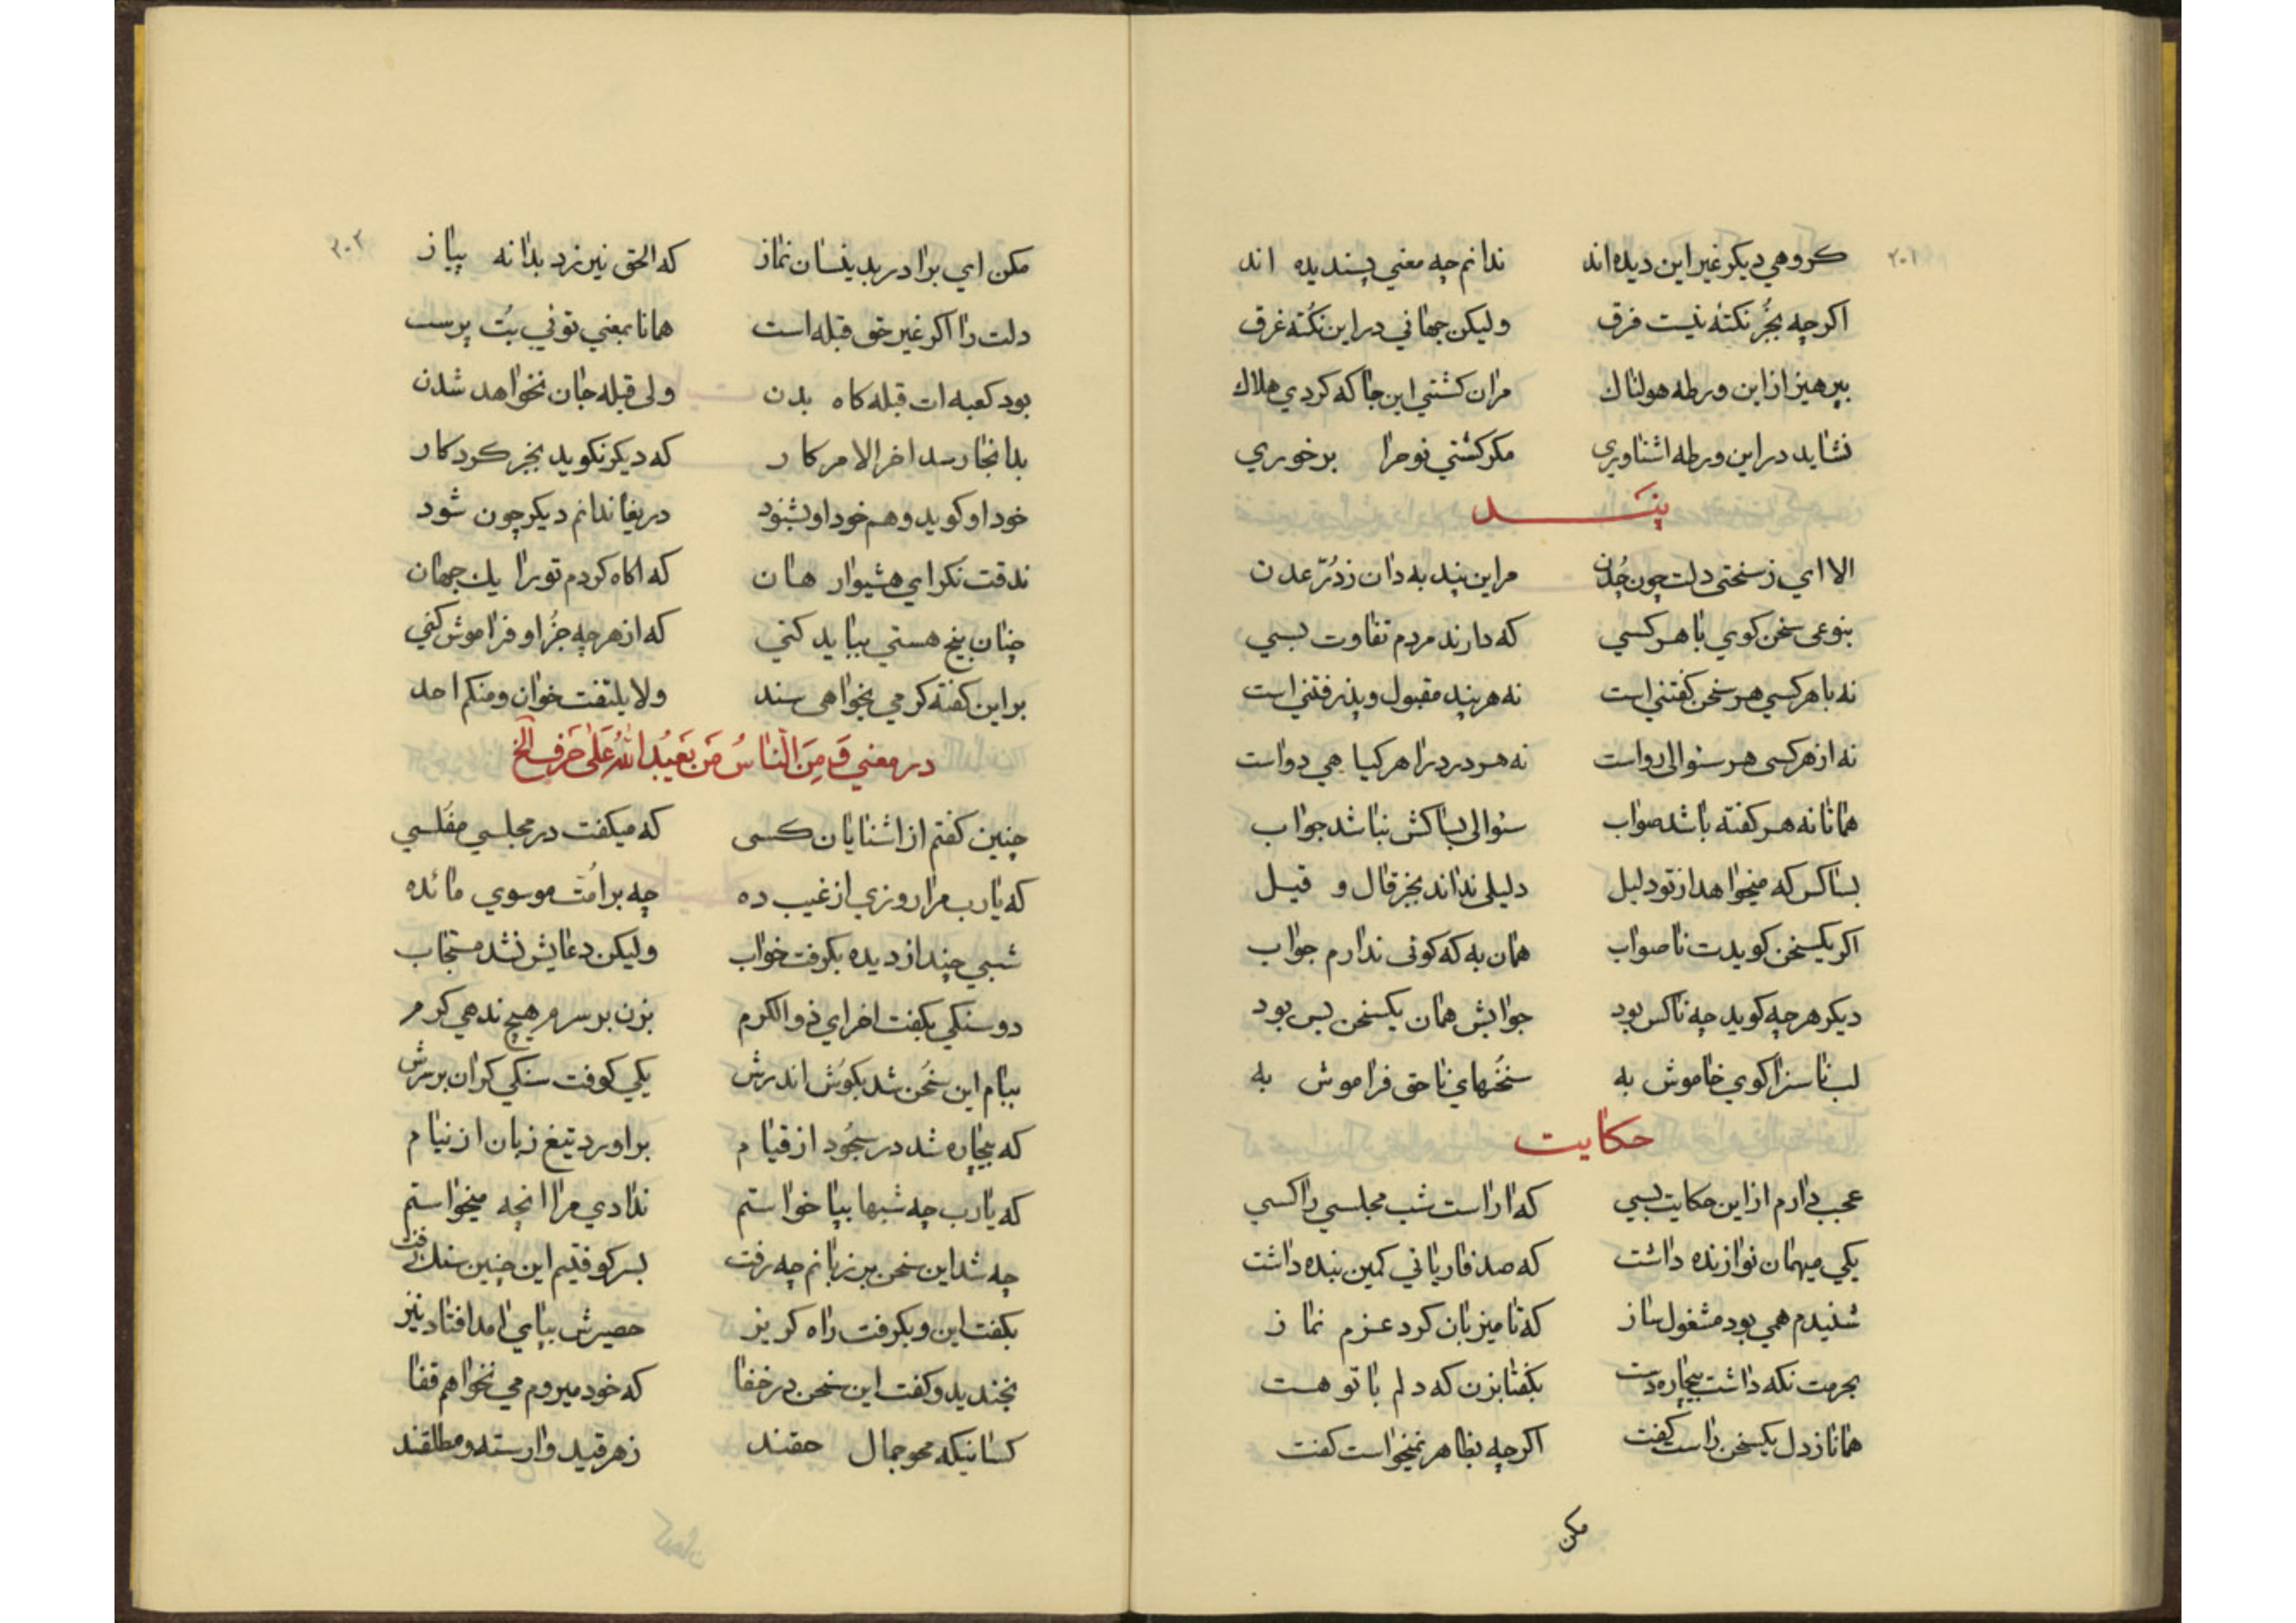 ۲۰۱
کروهي دیکر غیر این دیده اند ندانم چه معني پسندیده اند
اکرچه بجُز نکتهٔ نیست فرق ولیکن جهاني در این نکُته غرق
بپرهیز از این ورطه هولناك مران کشتي این جا که کردي هلاك
نشاید در این ورطه اشناوري مکر کشتي نوح را برخوري
پند
الا اي ز سختي دلت چون چُدن مر این پند به دان ز دُرّ عدن
بنوعی سخن کوي با هر کسي که دارند مردم تفاوت بسي
نه با هر کسي هر سخن کفتني است نه هر پند مقبول و پذرفتني است
نه از هر کسی هر سئوالی رواست نه هر درد را هر کیاهي دواست
همانا نه هر کفته باشد صواب سئوالی بسا کش نباشد جواب
بسا کس که میخواهد از تو دلیل دلیلی نداند بجز قال و قیل
اکر یکسخن کویدت ناصواب همان به که کوئی ندارم جواب
دیکر هر چه کوید چه ناکس بود جوابش همان یکسخن بس بود
لب ناسزا کوي خاموش به سخُنهاي ناحق فراموش به
حکایت
عجب دارم از این حکایت بسي که اراست شب مجلسي را کسي
یکي میهمان نوازنده داشت که صد فاریاني کمین بنده داشت
شنیدم همي بود مشغول ساز که تا میزبان کرد عزم نماز
بحرمت نکه داشت بیچاره دست بکفتا بزن که دلم با تو هست
همانا ز دل یکسخن راست کفت اکرچه بظاهر نمیخواست کفت
مکن
۲۰۲
مکن اي برادر بدینسان نماز که الحق نیرزد بدانه پیاز
دلت را اکر غیر حق قبله است همانا بمعني توئي بُت پرست
بود کعبه ات قبله کاه بدن ولی قبله جان نخواهد شدن
بدانجا رسد اخر الامر کار که دیکر نکوید بجز کرد کار
خود او کوید و هم خود او بشنود دریغا ندانم دیکر چون شود
ندقت نکر اي هشیوار هان که اکاه کردم تو را یك جهان
چنان بیخ هستي بباید کني که از هر چه جُز او فراموش کني
بر این کفته کر مي بخواهی سند ولا یلتفت خوان و منکم احد
در معني وَ مِنَ النّاسُ مَن یَعبُدُ اللهُ عَلیٰ حَرفٍ الخ
چنین کفتم از اشنایان کسی که میکفت در مجلسي مفُلسي
که یا رب مرا روزي از غیب ده چه بر امُت موسوي مائده
شبي چند از دیده بکرفت خواب ولیکن دعایش نشد مستجاب
دو سنکي بکفت اخر اي ذوالکرم بزن بر سرم هیچ ندهي کرم
ببام این سخُن شد بکوش اندرش یکي کوفت سنکي کران بر سرش
که بیچاره شد در سجُود از قیام براورد تیغ زبان از نیام
که یا رب چه شبها بپا خواستم ندادي مرا انچه میخواستم
چه شد این سخن بر زبانم چه رفت بسر کوفتیم این چنین سنك زفت
بکفت این و بکرفت راه کریز حصیرش بپاي امد افتاد نیز
بخندید و کفت این سخن در خفا که خود میروم مي نخواهم قفا
کسانیکه محو جمال حقند ز هر قید وارسته و مطلقند